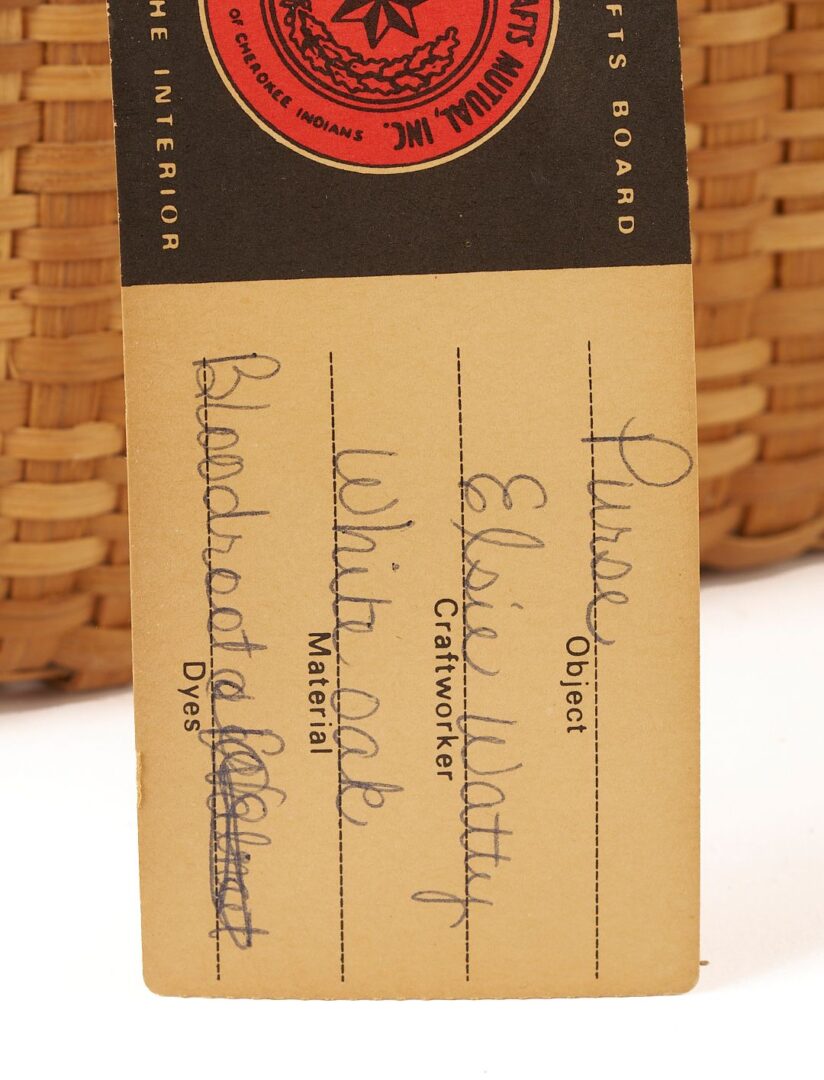 FTS BOARD
AFTS MUTUAL, INC.
OF CHEROKEE INDIANS
HE INTERIOR
Purse
Object
Elsie Watty
Craftworker
White oak
Material
Bloodroot
Dyes